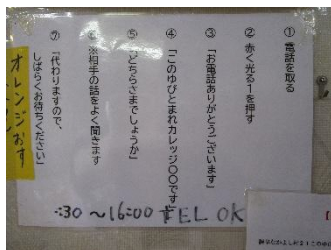 ① 電話を取る
② 赤く光る1を押す
③ 「お電話ありがとうございます」
④ 「このゆびとまれカレッジ〇〇です」
⑤ 「どちらさまでしょうか」
⑥ ※相手の話をよく聞きます
⑦ 「代わりますので、
しばらくお待ちください」
オレンジおす
:30 ~16:00 TEL OK